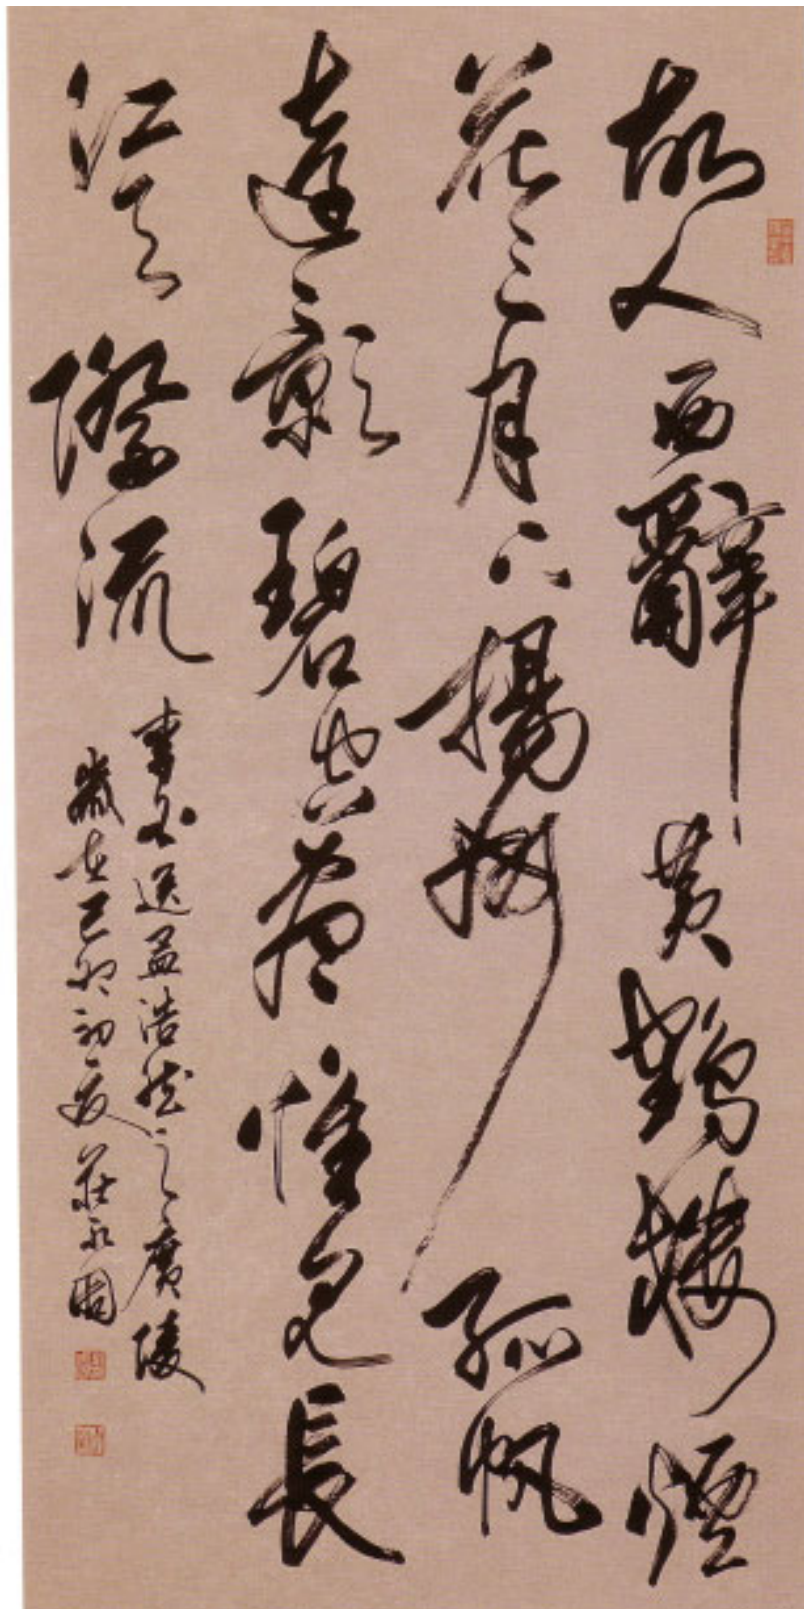 故人西辭黄鶴楼煙
花三月下揚州孤帆
遠影碧空盡惟見長
江天際流
李白送孟浩然之廣陵
歲在己卯初夏莊永固